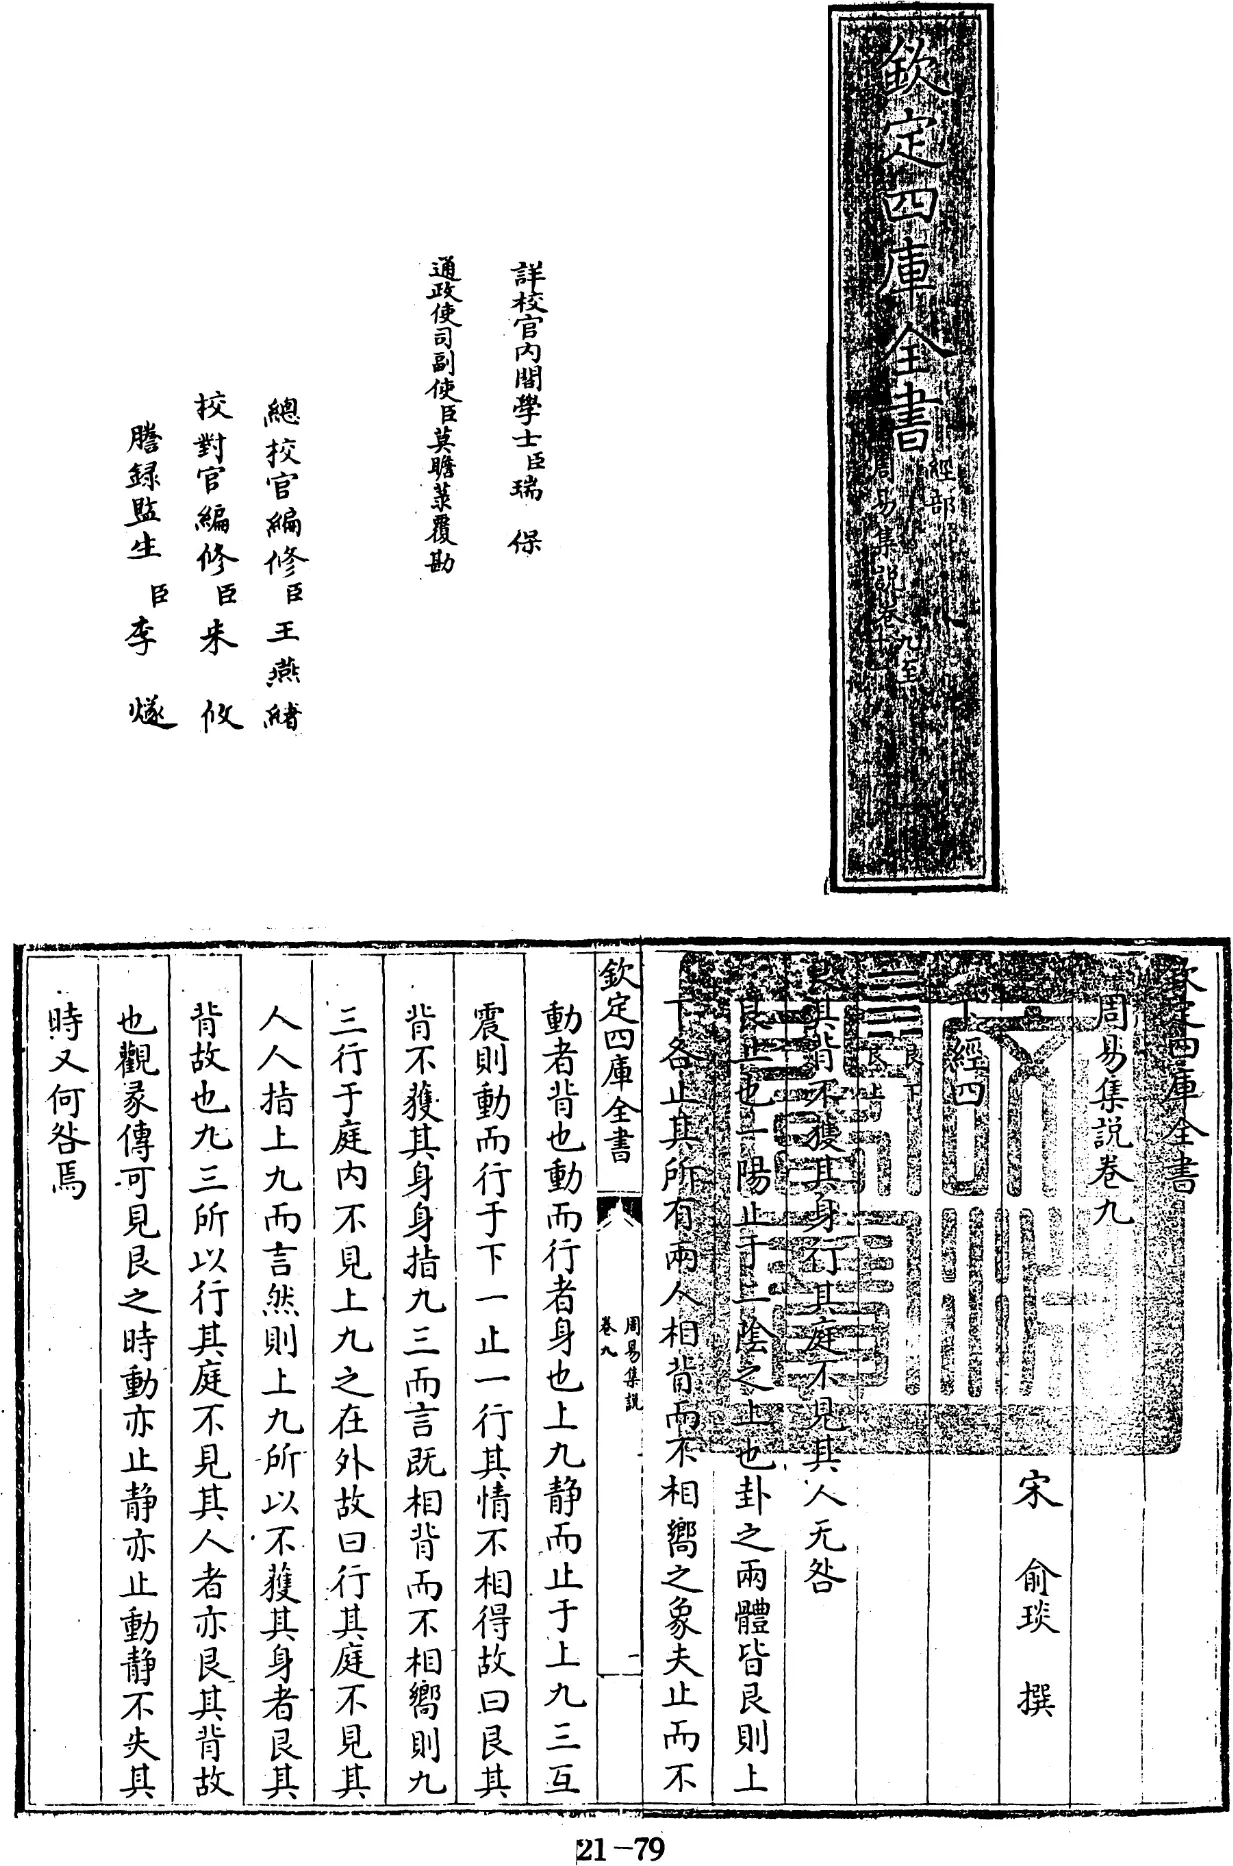 欽定四庫全書
經部
周易集説卷九至十
詳校官內閣學士臣瑞保
通政使司副使臣莫瞻菉覆勘
總校官編修臣王燕緒
校對官編修臣朱攸
謄錄監生臣李燧
欽定四庫全書
周易集説卷九
宋 俞琰 撰
下經四
艮下
艮上
艮其背不獲其身行其庭不見其人无咎
艮止也一陽止于二陰之上也卦之兩體皆艮則上
下各止其所有兩人相背而不相嚮之象夫止而不
欽定四庫全書
周易集説
卷九
一
動者背也動而行者身也上九靜而止于上九三互
震則動而行于下一止一行其情不相得故曰艮其
背不獲其身身指九三而言既相背而不相嚮則九
三行于庭内不見上九之在外故曰行其庭不見其
人人指上九而言然則上九所以不獲其身者艮其
背故也九三所以行其庭不見其人者亦艮其背故
也觀彖傳可見艮之時動亦止靜亦止動靜不失其
時又何咎焉
21-79